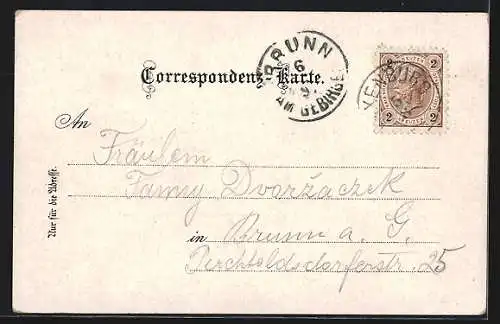 BRUNN
6
AM GEBIRGE
Correspondenz-Karte.
2 KREUZER 2
2 2
An
Fräulein
Fanny Dvoržaczek
in Brunn a. G.
Perchtoldsdorferstr. 25
Nur für die Adresse.